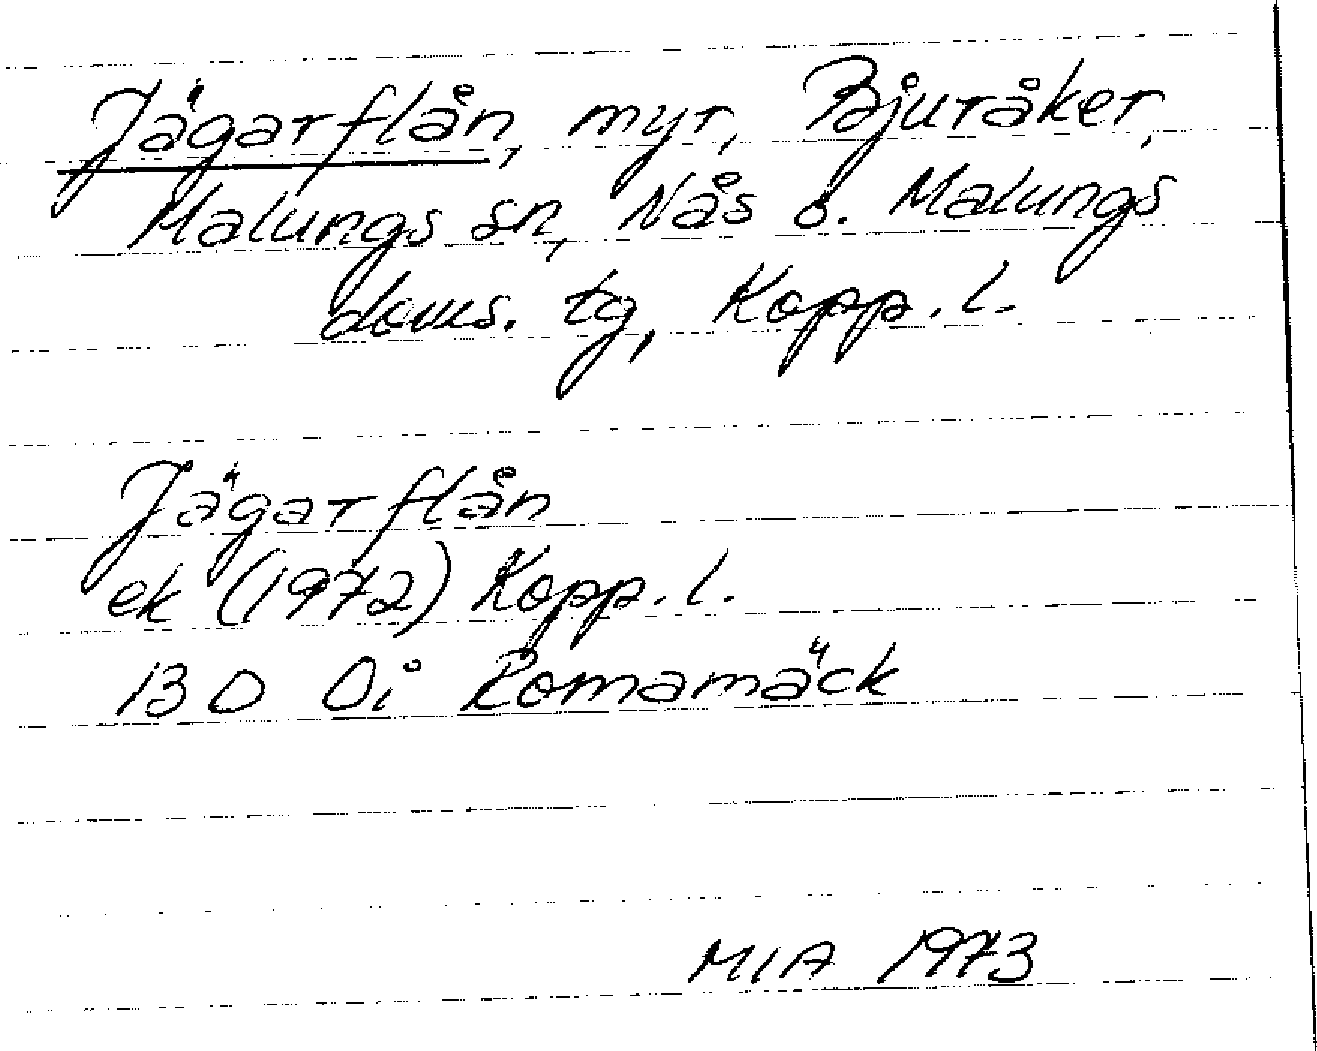 Jägarflån, myr, Bjuråker,
Malungs sn, Nås o. Malungs
doms. tg, Kopp. l.
Jägarflån
ek (1972) Kopp. l.
13 D 0i Romamäck
MIA 1973